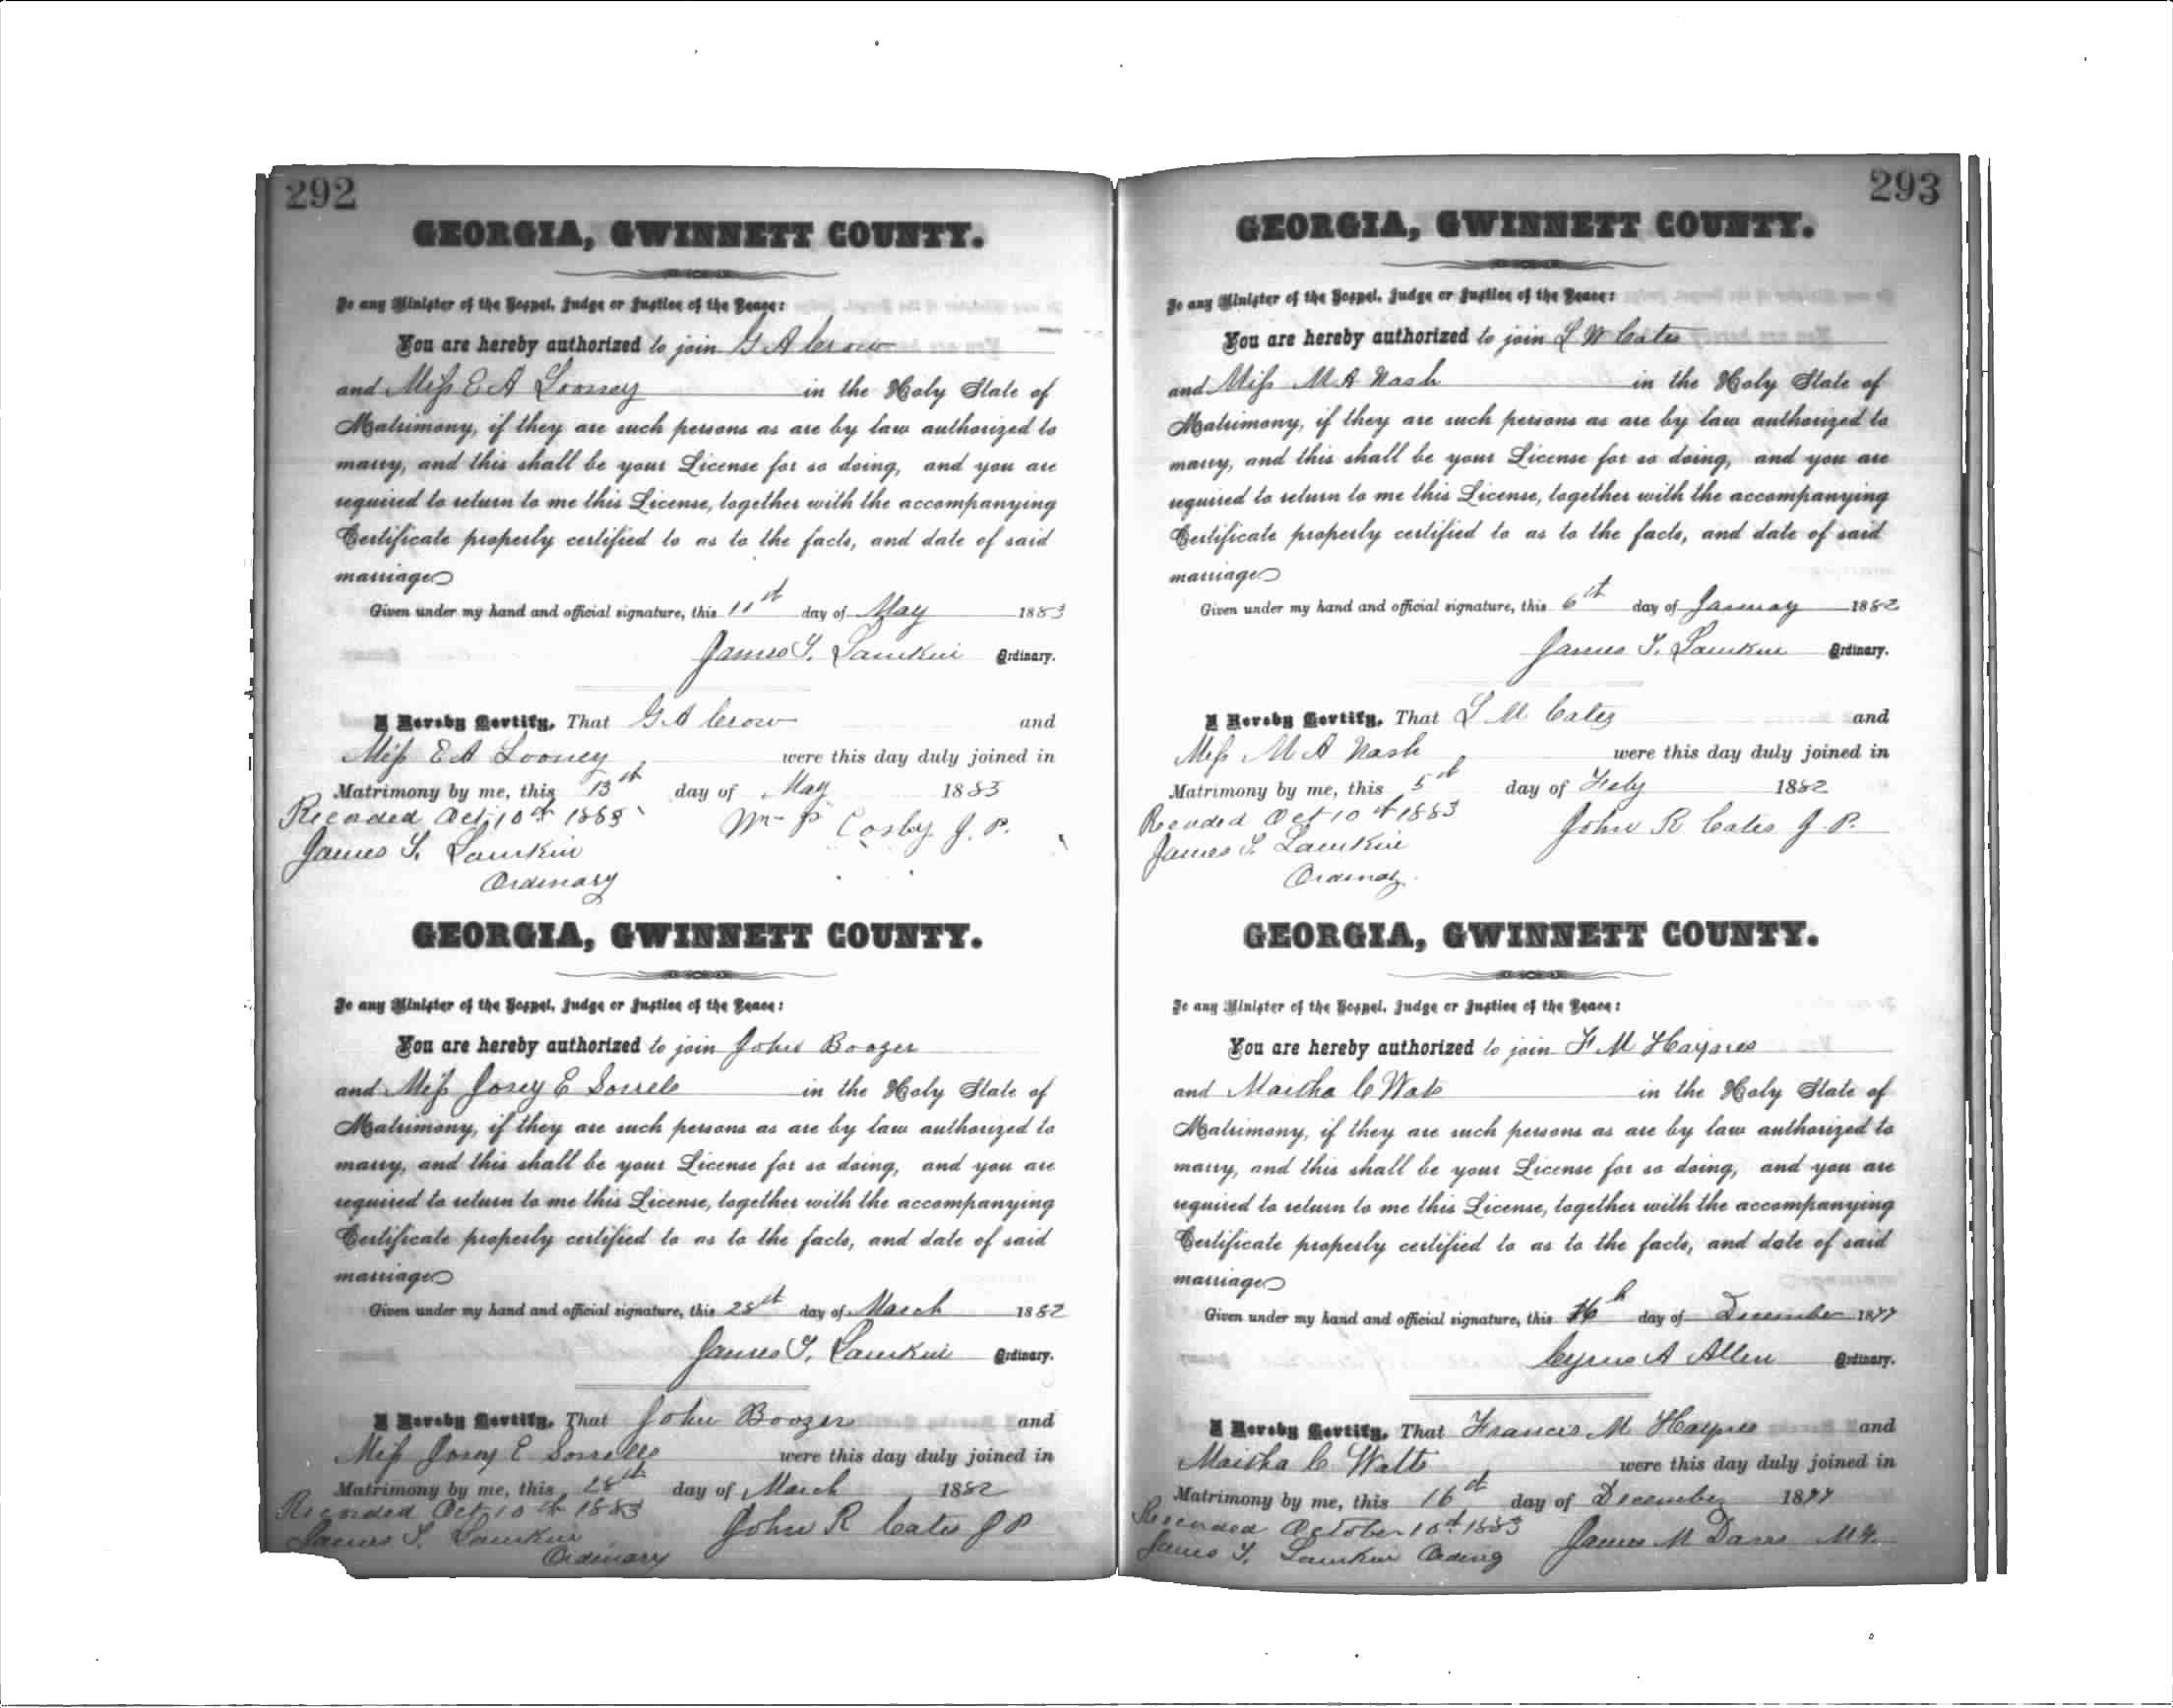 292
GEORGIA, GWINNETT COUNTY.
To any Minister of the Gospel, Judge or Justice of the Peace:
You are hereby authorized to join G A Crow
and Miss E A Looney in the Holy State of
Matrimony, if they are such persons as are by law authorized to
marry, and this shall be your License for so doing, and you are
required to return to me this License, together with the accompanying
Certificate properly certified to as to the facts, and date of said
marriage
Given under my hand and official signature, this 11th day of May 1883
James T. Lamkin Ordinary.
I Hereby Certify, That G A Crow and
Miss E A Looney were this day duly joined in
Matrimony by me, this 13th day of May 1883
Recorded Oct 10th 1883 Wm P Cosby J. P.
James T. Lamkin
Ordinary
GEORGIA, GWINNETT COUNTY.
To any Minister of the Gospel, Judge or Justice of the Peace:
You are hereby authorized to join John Boozer
and Miss Josey E Sorrels in the Holy State of
Matrimony, if they are such persons as are by law authorized to
marry, and this shall be your License for so doing, and you are
required to return to me this License, together with the accompanying
Certificate properly certified to as to the facts, and date of said
marriage
Given under my hand and official signature, this 28th day of March 1882
James T. Lamkin Ordinary.
I Hereby Certify, That John Boozer and
Miss Josey E Sorrells were this day duly joined in
Matrimony by me, this 28th day of March 1882
Recorded Oct 10th 1883 John R Cates J P
James T. Lamkin
Ordinary
293
GEORGIA, GWINNETT COUNTY.
To any Minister of the Gospel, Judge or Justice of the Peace:
You are hereby authorized to join L W Cates
and Miss M A Nash in the Holy State of
Matrimony, if they are such persons as are by law authorized to
marry, and this shall be your License for so doing, and you are
required to return to me this License, together with the accompanying
Certificate properly certified to as to the facts, and date of said
marriage
Given under my hand and official signature, this 6th day of January 1882
James T. Lamkin Ordinary.
I Hereby Certify, That L M Cates and
Miss M A Nash were this day duly joined in
Matrimony by me, this 5th day of Feby 1882
Recorded Oct 10th 1883 John R Cates J. P.
James T. Lamkin
Ordinary.
GEORGIA, GWINNETT COUNTY.
To any Minister of the Gospel, Judge or Justice of the Peace:
You are hereby authorized to join F M Haynes
and Martha C Wats in the Holy State of
Matrimony, if they are such persons as are by law authorized to
marry, and this shall be your License for so doing, and you are
required to return to me this License, together with the accompanying
Certificate properly certified to as to the facts, and date of said
marriage
Given under my hand and official signature, this day of December 1877
Cyrus A Allen Ordinary.
I Hereby Certify, That Francis M Haynes and
Martha C Watts were this day duly joined in
Matrimony by me, this 16th day of December 1877
Recorded October 10th 1883 James M Davis M.G.
James T. Lamkin